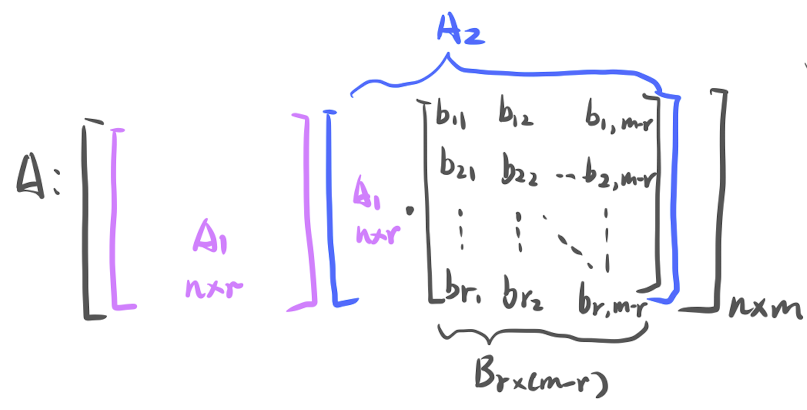 A₂
A: [ [ A₁ n×r ] [ A₁ n×r · [ b₁₁ b₁₂ b₁,m-r
b₂₁ b₂₂ ... b₂,m-r
⋮ ⋮ ⋱ ⋮
br₁ br₂ br,m-r ] ] ] n×m
B r×(m-r)